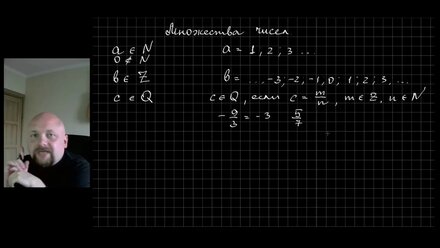 Множества чисел
a ∈ N a = 1, 2, 3 ...
0 ∉ N
b ∈ Z b = ..., -3, -2, -1, 0; 1; 2; 3, ...
c ∈ Q c ∈ Q, если c = m/n, m ∈ Z, n ∈ N
-9/3 = -3 5/7